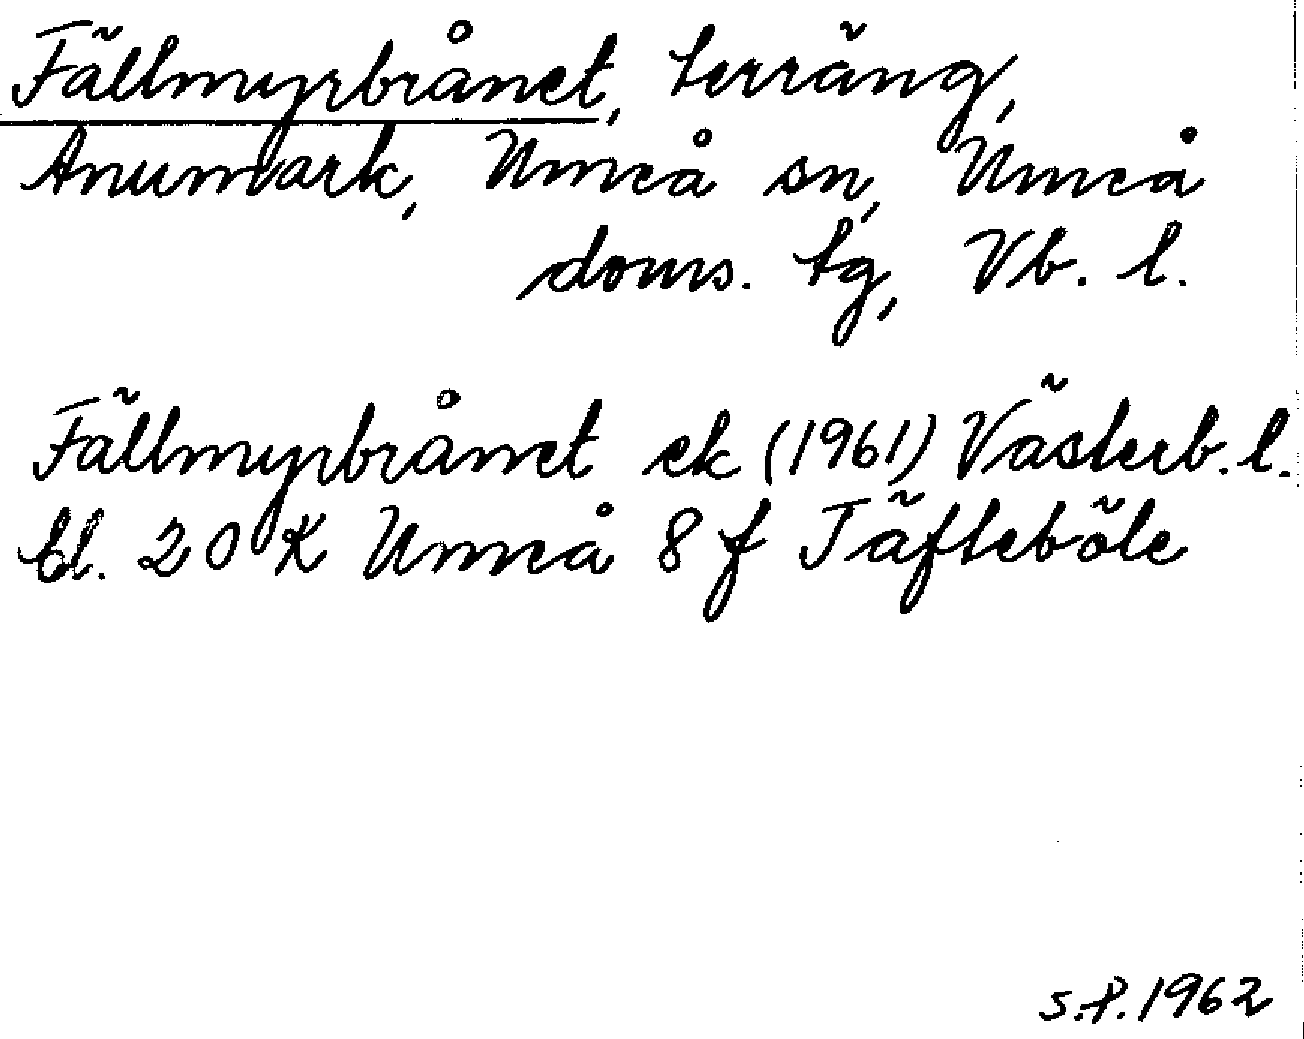 Fällmyrbrånet, terräng,
Anumark, Umeå sn, Umeå
doms. tg, Vb. l.
Fällmyrbrånet ek (1961) Västerb. l.
bl. 20 K Umeå 8 f Täfteböle
S.P. 1962